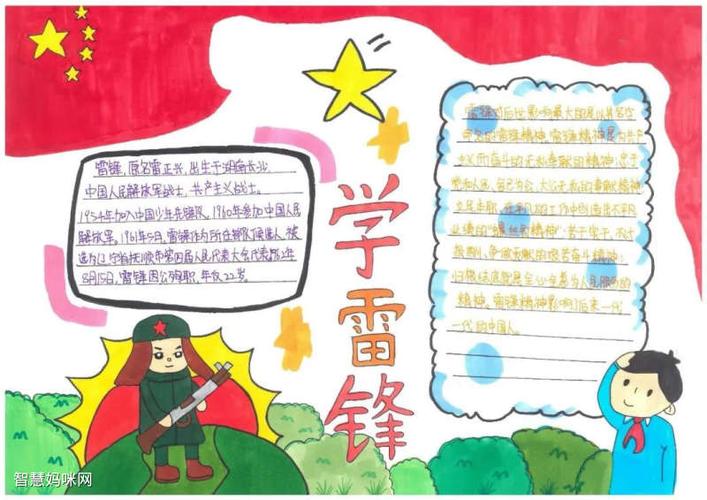 学雷锋
雷锋,原名雷正兴,出生于湖南长沙,
中国人民解放军战士,共产主义战士。
1954年加入中国少年先锋队,1960年参加中国人民
解放军,1961年5月,雷锋作为所在部队候选人,被
选为辽宁省抚顺市第四届人民代表大会代表。
8月15日,雷锋因公殉职,年仅22岁。
雷锋对后世影响最大的是以其名字
命名的雷锋精神,雷锋精神是为共产
主义而奋斗的无私奉献的精神;忠于
党和人民、舍己为公、大公无私的奉献精神
立足本职、在平凡的工作中创造出不平凡
业绩的"螺丝钉精神";苦干实干、不计
报酬、争做贡献的艰苦奋斗精神;
归根结底就是全心全意为人民服务的
精神,雷锋精神影响了后来一代
一代的中国人。
智慧妈咪网